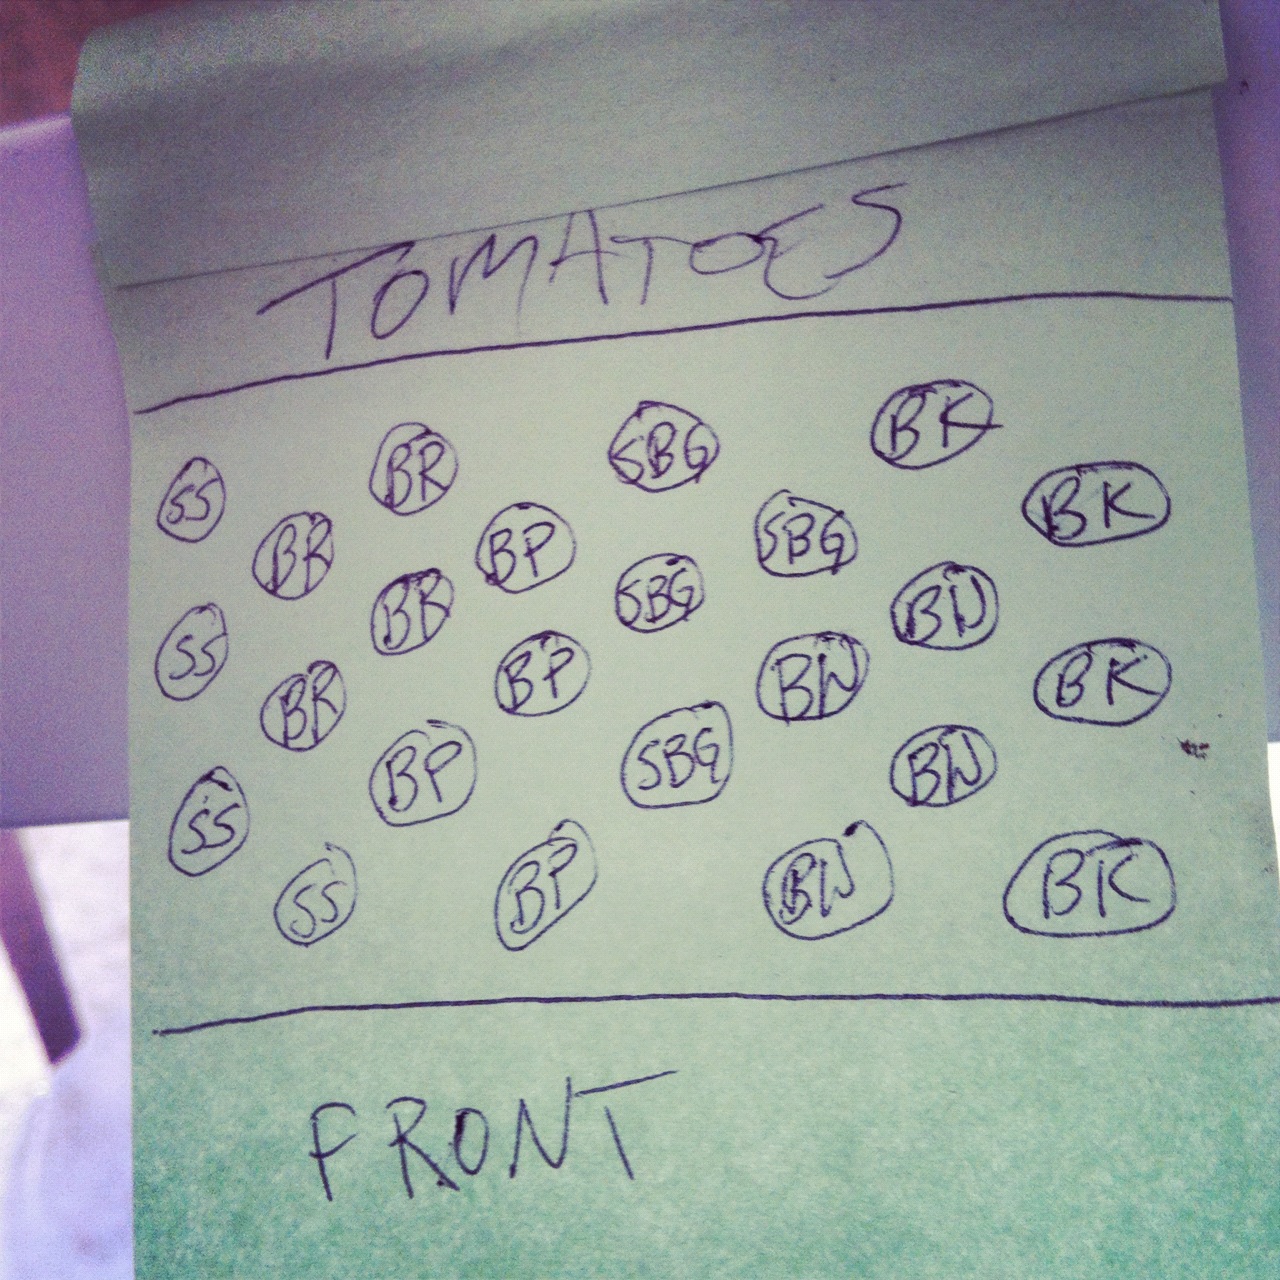 TOMATOES
SS BR SBG BK
BR BP SBG BK
SS BR SBG BW
BR BP BW BK
SS BP SBG BW
SS BP BW BK
FRONT